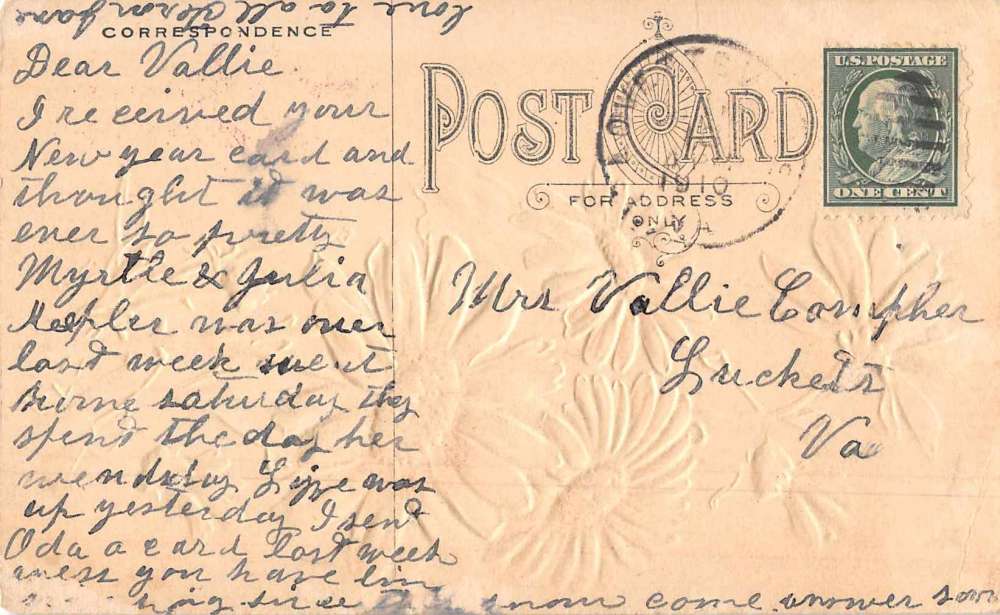 love to all
CORRESPONDENCE
Dear Vallie
I received your
New year card and
thought it was
ever so pretty
Myrtle & Julia
was over
last week went
saturday they
spent the day her
wendsday Lizze was
up yesterday I sent
Oda a card last week
you have bin
since snow come answer soon
POST CARD
1910
FOR ADDRESS
ONLY
U.S. POSTAGE
ONE CENT
Mrs Vallie Compher
Luckets
Va